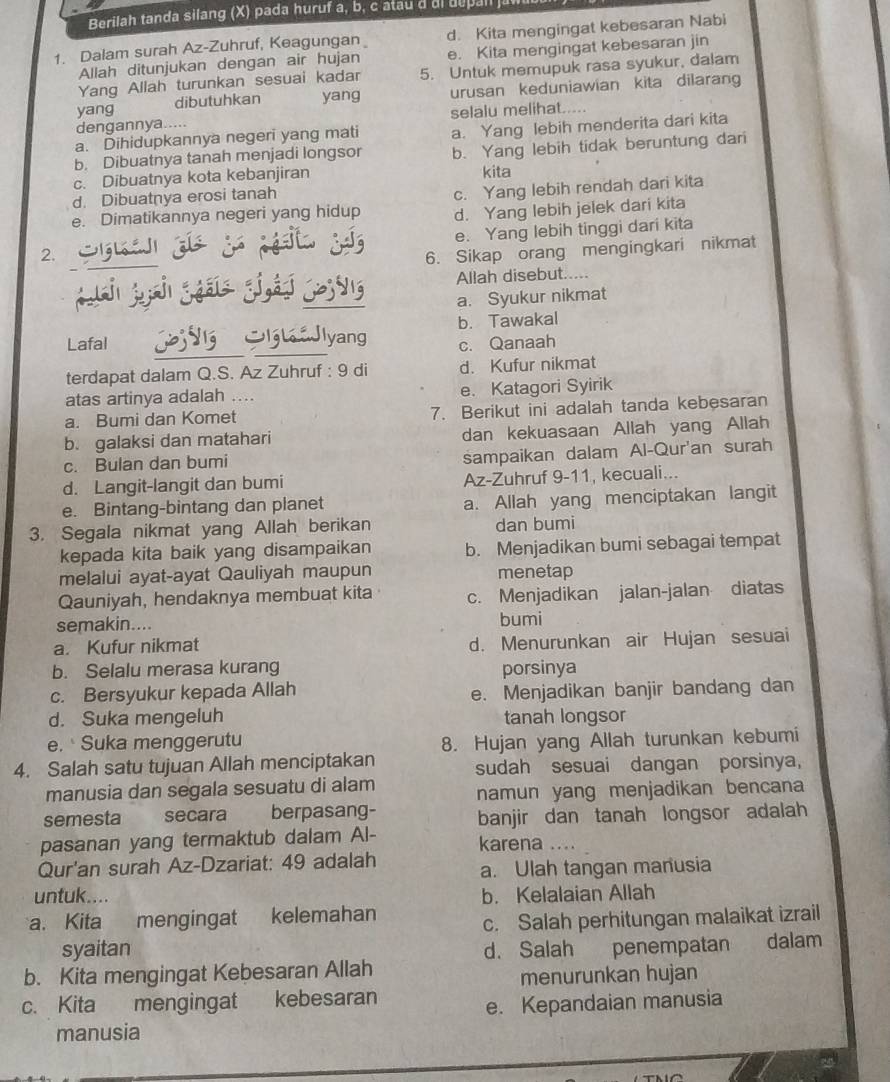 Berilah tanda silang (X) pada huruf a, b, c atau d di depan
1. Dalam surah Az-Zuhruf, Keagungan
Allah ditunjukan dengan air hujan
Yang Allah turunkan sesuai kadar
yang dibutuhkan yang
dengannya.....
a. Dihidupkannya negeri yang mati
b. Dibuatnya tanah menjadi longsor
c. Dibuatnya kota kebanjiran
d. Dibuatnya erosi tanah
e. Dimatikannya negeri yang hidup
2. وَلَئِنْ سَأَلْتَهُمْ مَنْ خَلَقَ السَّمَاوَاتِ
وَالْأَرْضَ لَيَقُولُنَّ خَلَقَهُنَّ الْعَزِيزُ الْعَلِيمُ
Lafal السَّمَاوَاتِ وَالْأَرْضَ yang
terdapat dalam Q.S. Az Zuhruf : 9 di
atas artinya adalah ....
a. Bumi dan Komet
b. galaksi dan matahari
c. Bulan dan bumi
d. Langit-langit dan bumi
e. Bintang-bintang dan planet
3. Segala nikmat yang Allah berikan
kepada kita baik yang disampaikan
melalui ayat-ayat Qauliyah maupun
Qauniyah, hendaknya membuat kita
semakin....
a. Kufur nikmat
b. Selalu merasa kurang
c. Bersyukur kepada Allah
d. Suka mengeluh
e. Suka menggerutu
4. Salah satu tujuan Allah menciptakan
manusia dan segala sesuatu di alam
semesta secara berpasang-
pasanan yang termaktub dalam Al-
Qur'an surah Az-Dzariat: 49 adalah
untuk....
a. Kita mengingat kelemahan
syaitan
b. Kita mengingat Kebesaran Allah
c. Kita mengingat kebesaran
manusia
d. Kita mengingat kebesaran Nabi
e. Kita mengingat kebesaran jin
5. Untuk memupuk rasa syukur, dalam
urusan keduniawian kita dilarang
selalu melihat.....
a. Yang lebih menderita dari kita
b. Yang lebih tidak beruntung dari
kita
c. Yang lebih rendah dari kita
d. Yang lebih jelek dari kita
e. Yang lebih tinggi dari kita
6. Sikap orang mengingkari nikmat
Allah disebut.....
a. Syukur nikmat
b. Tawakal
c. Qanaah
d. Kufur nikmat
e. Katagori Syirik
7. Berikut ini adalah tanda kebesaran
dan kekuasaan Allah yang Allah
sampaikan dalam Al-Qur'an surah
Az-Zuhruf 9-11, kecuali...
a. Allah yang menciptakan langit
dan bumi
b. Menjadikan bumi sebagai tempat
menetap
c. Menjadikan jalan-jalan diatas
bumi
d. Menurunkan air Hujan sesuai
porsinya
e. Menjadikan banjir bandang dan
tanah longsor
8. Hujan yang Allah turunkan kebumi
sudah sesuai dangan porsinya,
namun yang menjadikan bencana
banjir dan tanah longsor adalah
karena ....
a. Ulah tangan manusia
b. Kelalaian Allah
c. Salah perhitungan malaikat izrail
d. Salah penempatan dalam
menurunkan hujan
e. Kepandaian manusia